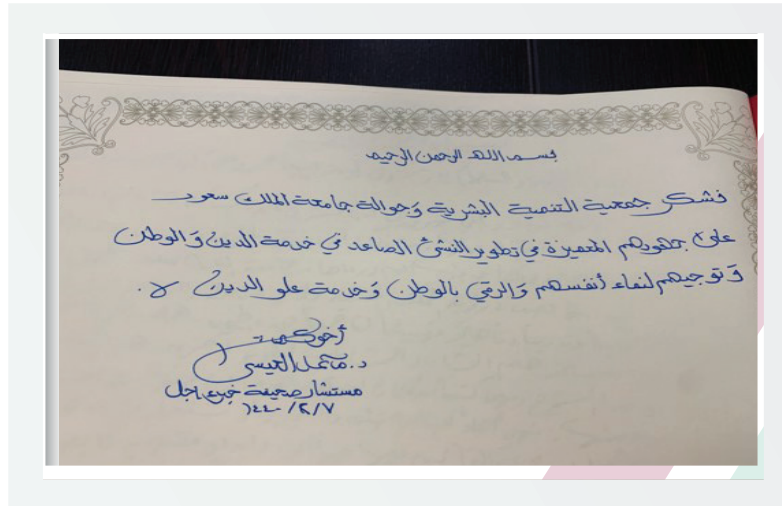 بسم الله الرحمن الرحيم
نشكر جمعية التنمية البشرية وجوالة جامعة الملك سعود
على جهودهم المتميزة في تطوير النشئ الصاعد في خدمة الدين و الوطن
و توجيههم لنفاء أنفسهم والرقي بالوطن وخدمة علو الدين
أخوكم
د. العيسى
مستشار صحيفة خبر عاجل
١٤٤٠/٢/٧